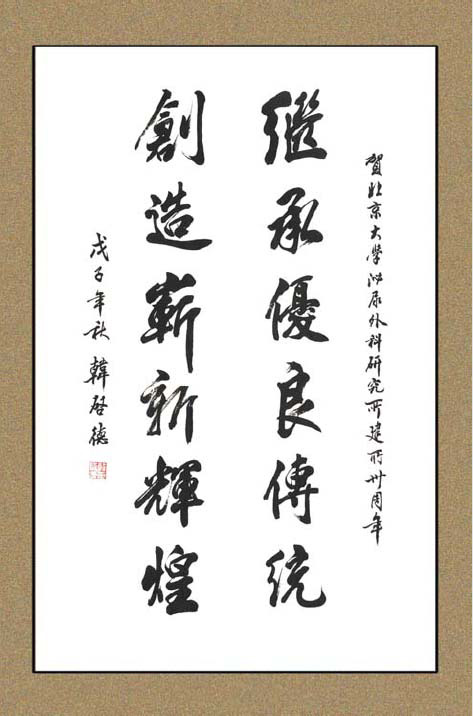 賀北京大學泌尿外科研究所建所卅周年
繼承優良傳統
創造嶄新輝煌
戊子年秋 韓啓德